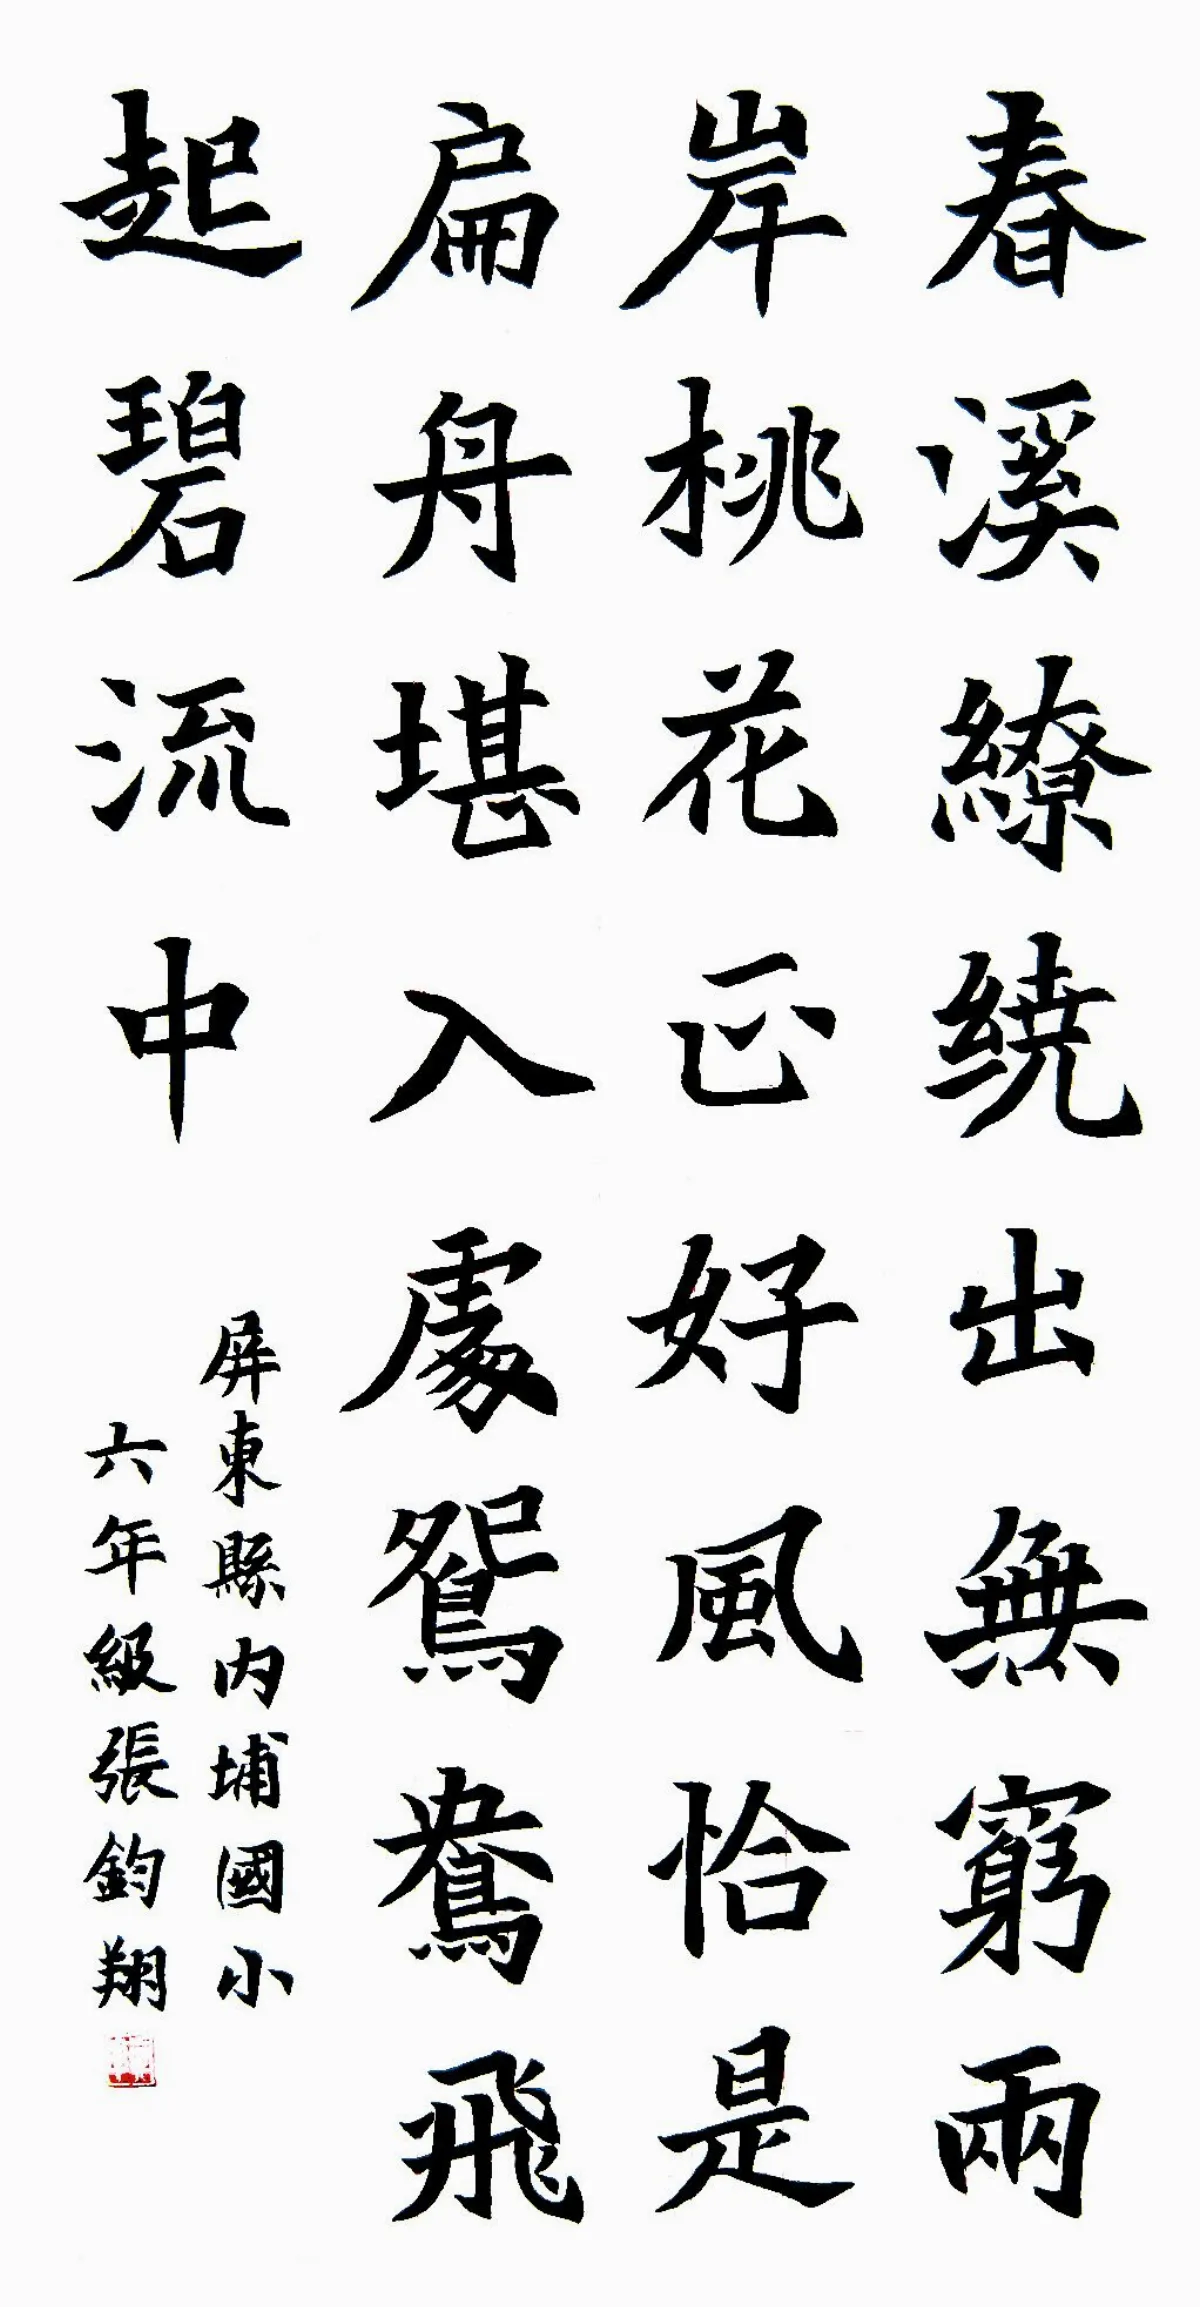 春溪繚繞出無窮兩
岸桃花正好風恰是
扁舟堪入處鴛鴦飛
起碧流中
屏東縣內埔國小
六年級張鈞翔